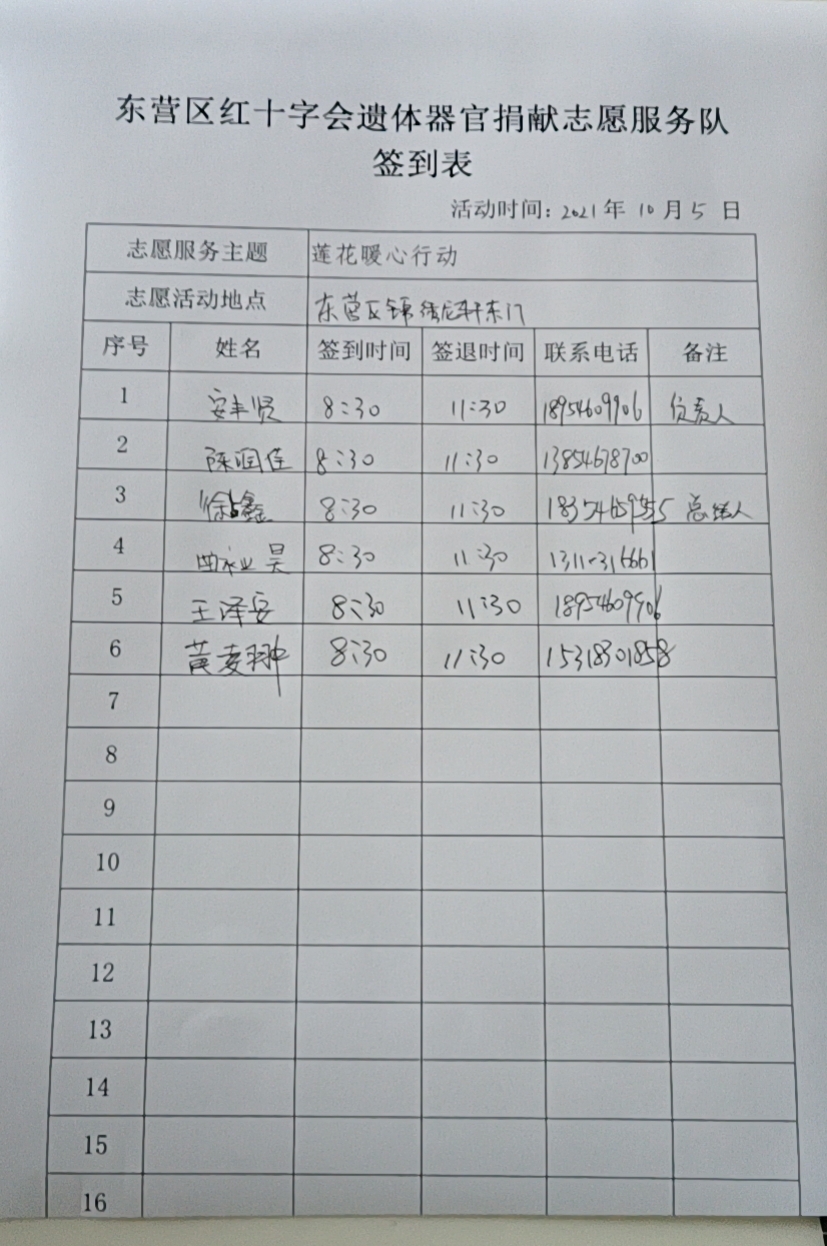 东营区红十字会遗体器官捐献志愿服务队
签到表
活动时间：2021年 10月5 日
志愿服务主题 莲花暖心行动
志愿活动地点 东营区锦绣龙轩东门
序号 姓名 签到时间 签退时间 联系电话 备注
1 安丰贤 8:30 11:30 18954609906 负责人
2 陈润佳 8:30 11:30 13854678700
3 徐占鑫 8:30 11:30 总结人
4 8:30 11:30
5 王泽安 8:30 11:30 18954609906
6 黄麦翀 8:30 11:30 15318301858
7
8
9
10
11
12
13
14
15
16